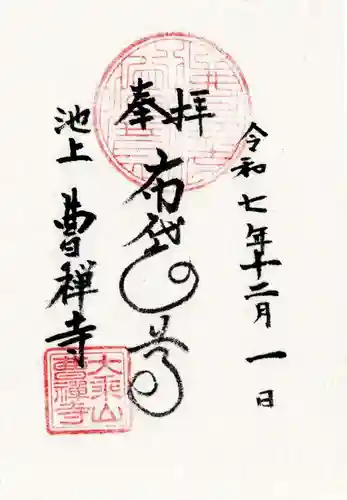 令和七年十二月一日
奉拝
布袋
池上
曹禅寺
大乗山
曹禅寺